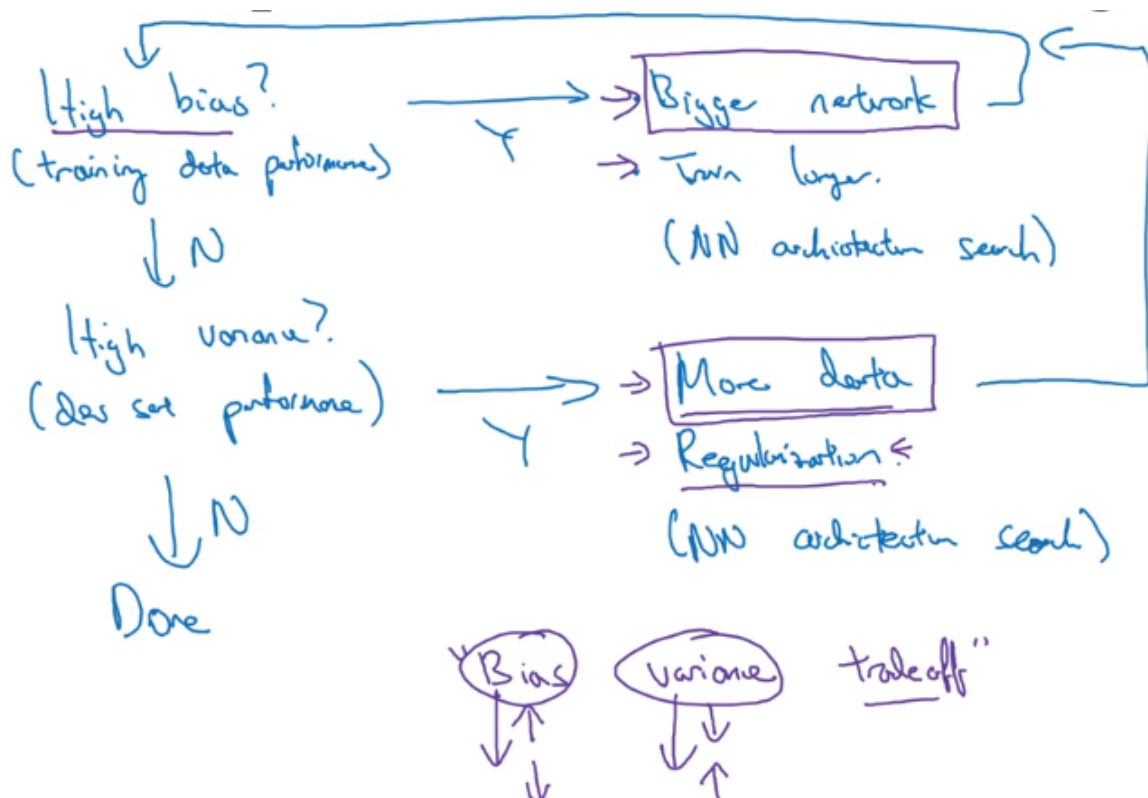 High bias?
(training data performance)
Y
Bigge network
Train longer.
(NN archiotecture search)
N
High variance?
(dev set performance)
Y
More data
Regularization.
(NN archiotecture search)
N
Done
"Bias variance tradeoff"